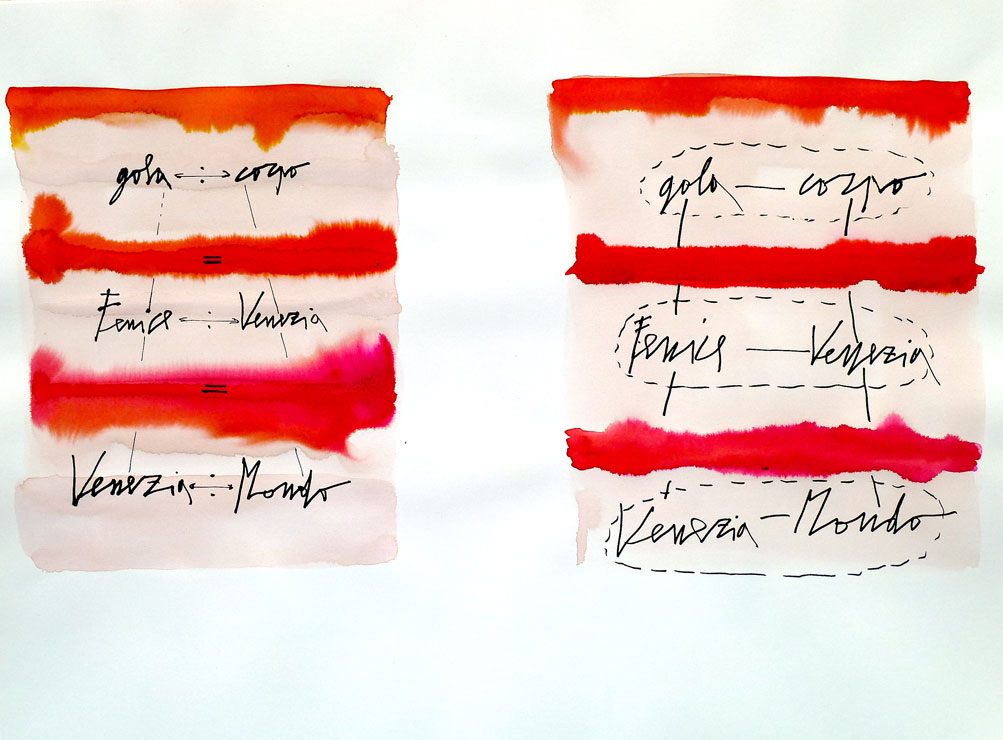 gola ↔ : ↔ corpo
=
Fenice ↔ : ↔ Venezia
=
Venezia ↔ : ↔ Mondo
gola — corpo
Fenice — Venezia
Venezia — Mondo